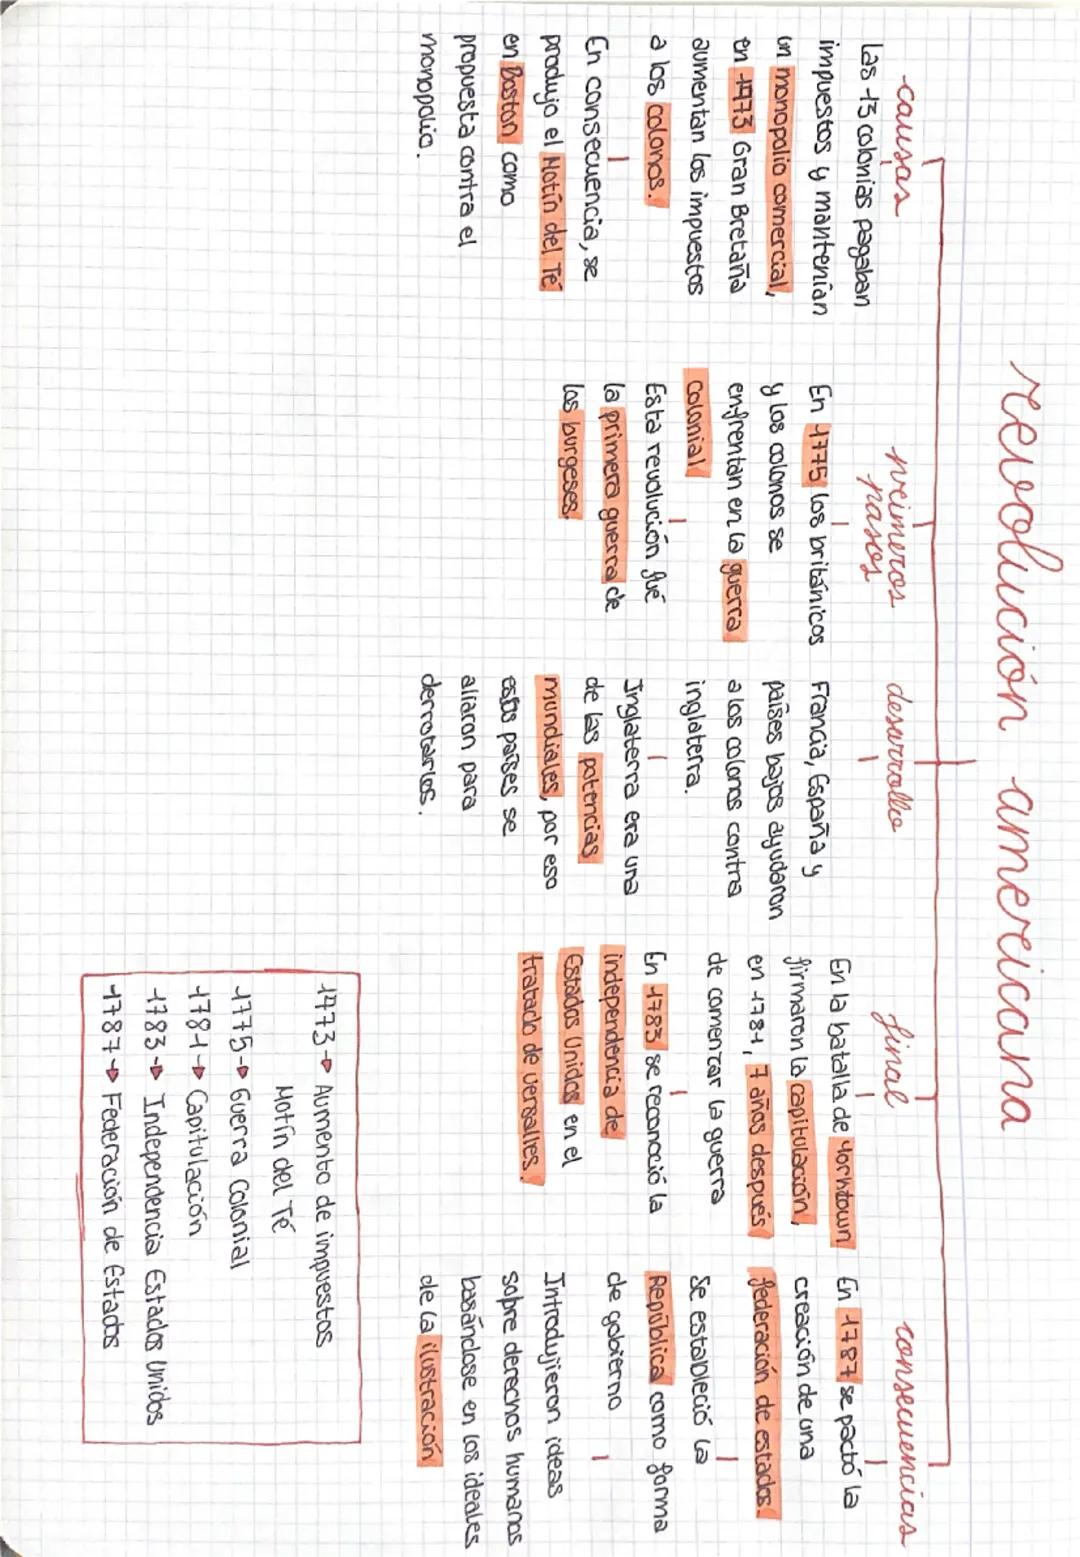 revolución americana
causas
las 13 colonias pagaban
impuestos y mantenían
un monopolio comercial,
en 1973 Gran Bretaña
aumentan los impuestos
a los colonos.
En consecuencia, se
produjo el Motín del Té
en Boston como
propuesta contra el
monopolio.
primeros
pasos
En 1775 los británicos
y los colonos se
enfrentan en la guerra
Colonial
Esta revolución fué
la primera guerra de
los burgeses.
desarrollo
Francia, España y
países bajos ayudaron
a los colonos contra
inglaterra.
Inglaterra era una
de las potencias
mundiales, por eso
estos países se
aliaron para
derrotarlos.
final
En la batalla de Yorktown
firmaron la capitulación,
en 1781, 7 años después
de comenzar la guerra
En 1783 se reconoció la
independencia de
Estados Unidos en el
tratado de versalles.
consecuencias
En 1787 se pactó la
creación de una
federación de estados.
Se estableció la
República como forma
de gobierno
Introdujieron ideas
sobre derechos humanos
basándose en los ideales
de la ilustración
1773→ Aumento de impuestos
Motín del Té
1775→ Guerra Colonial
1781→ Capitulación
1783→ Independencia Estados Unidos
1787→ Federación de Estados